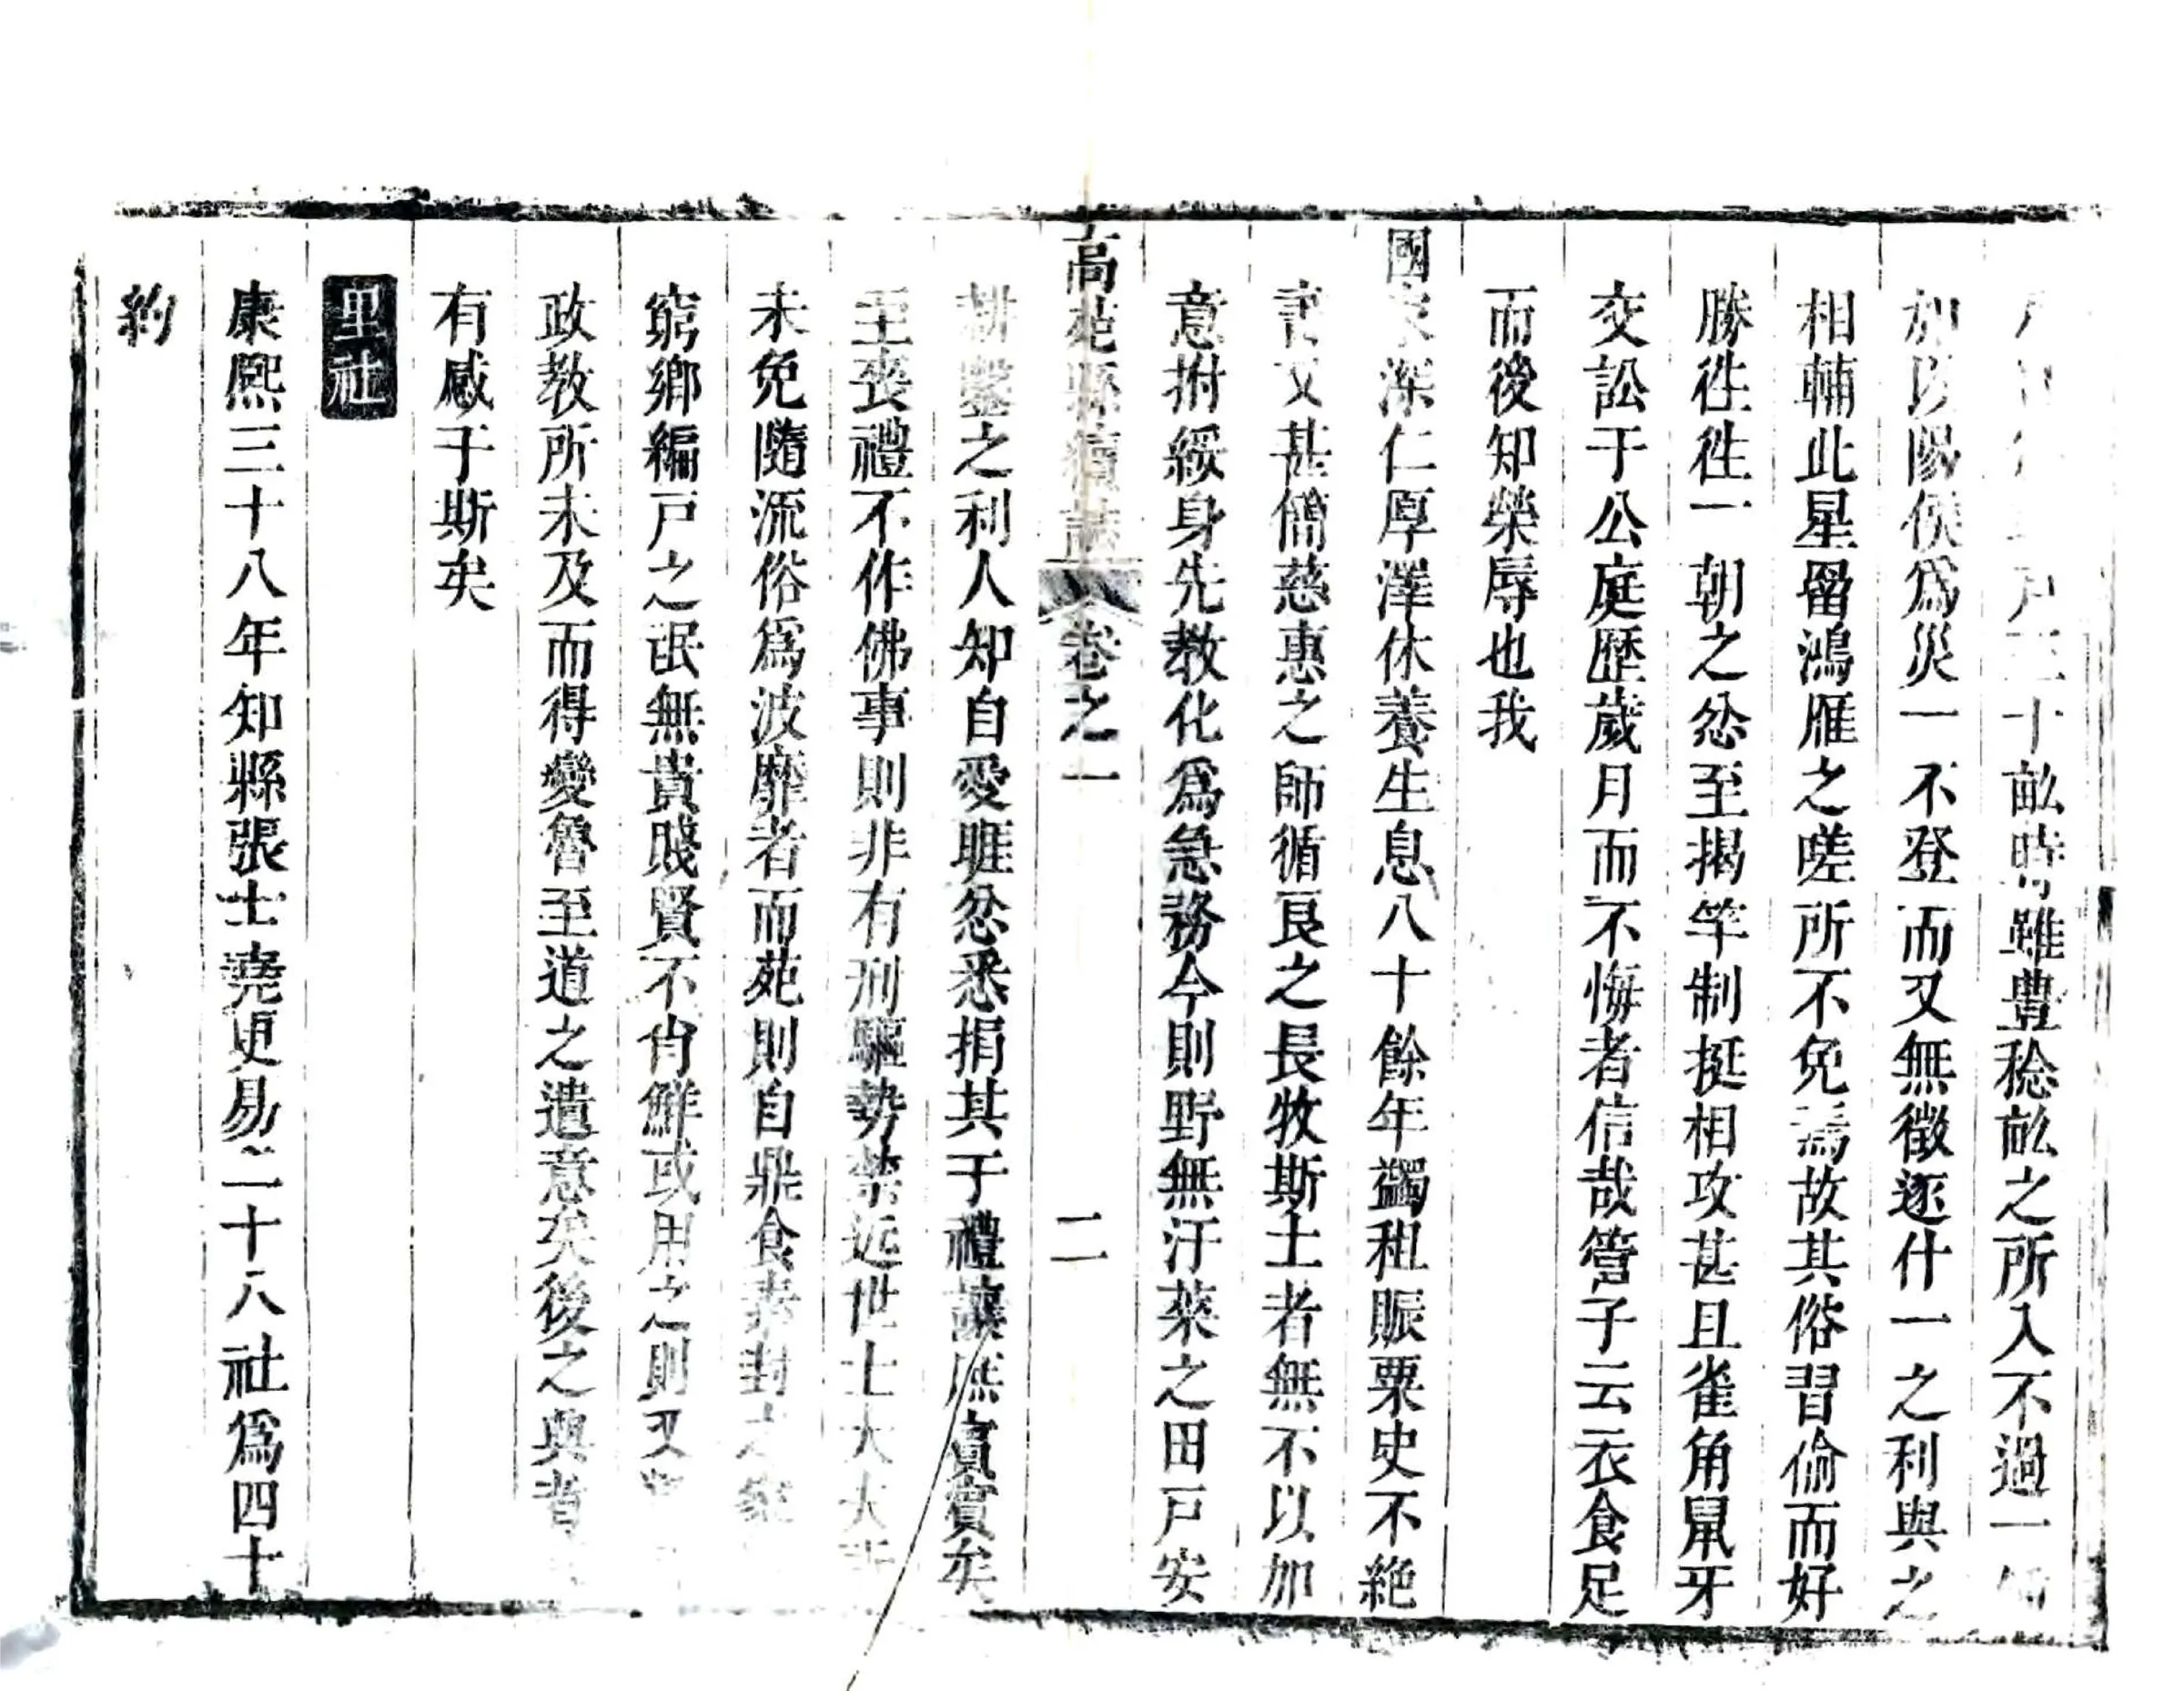 戸三十畝時雖豊稔畝之所入不過一
加以陽侯爲災一不登而又無徵逐什一之利與之
相輔此星罶鴻雁之嗟所不免焉故其俗習偷而好
勝徃徃一朝之忿至揭竿制挺相攻甚且雀角鼠牙
交訟于公庭歷歲月而不悔者信哉管子云衣食足
而後知榮辱也我
國家深仁厚澤休養生息八十餘年蠲租賑粟史不絶
書又甚僃慈惠之師循良之長牧斯土者無不以加
意拊綏身先教化爲急務今則野無汙萊之田戸安
高苑縣續誌 卷之一 二
耕鑿之利人知自愛睚忿悉捐其于禮讓庶實矣
至喪禮不作佛事則非有刑驅勢禁近世士大夫
未免隨流俗爲波靡者而苑則自鼎食素封之家
窮鄉編戸之氓無貴賤賢不肖鮮或用之則又
政教所未及而得變魯至道之遺意矣後之輿者
有感于斯矣
里社
康熙三十八年知縣張士堯更易二十八社爲四十
約